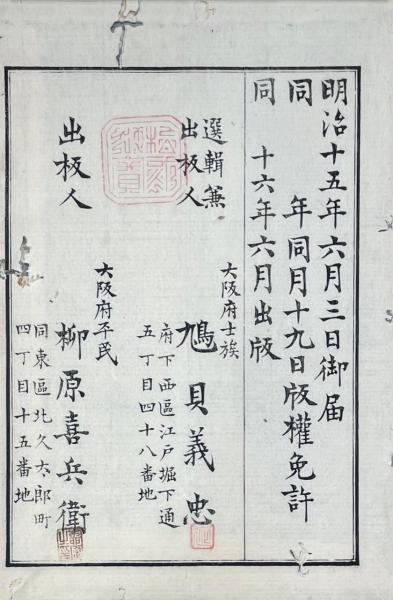 明治十五年六月三日御届
同　年同月十九日版權免許
同　十六年六月出版
選輯兼
出板人
大阪府士族
鳩貝義忠
府下西區江戸堀下通
五丁目四十八番地
出板人
大阪府平民
柳原喜兵衛
同東區北久太郎町
四丁目十五番地